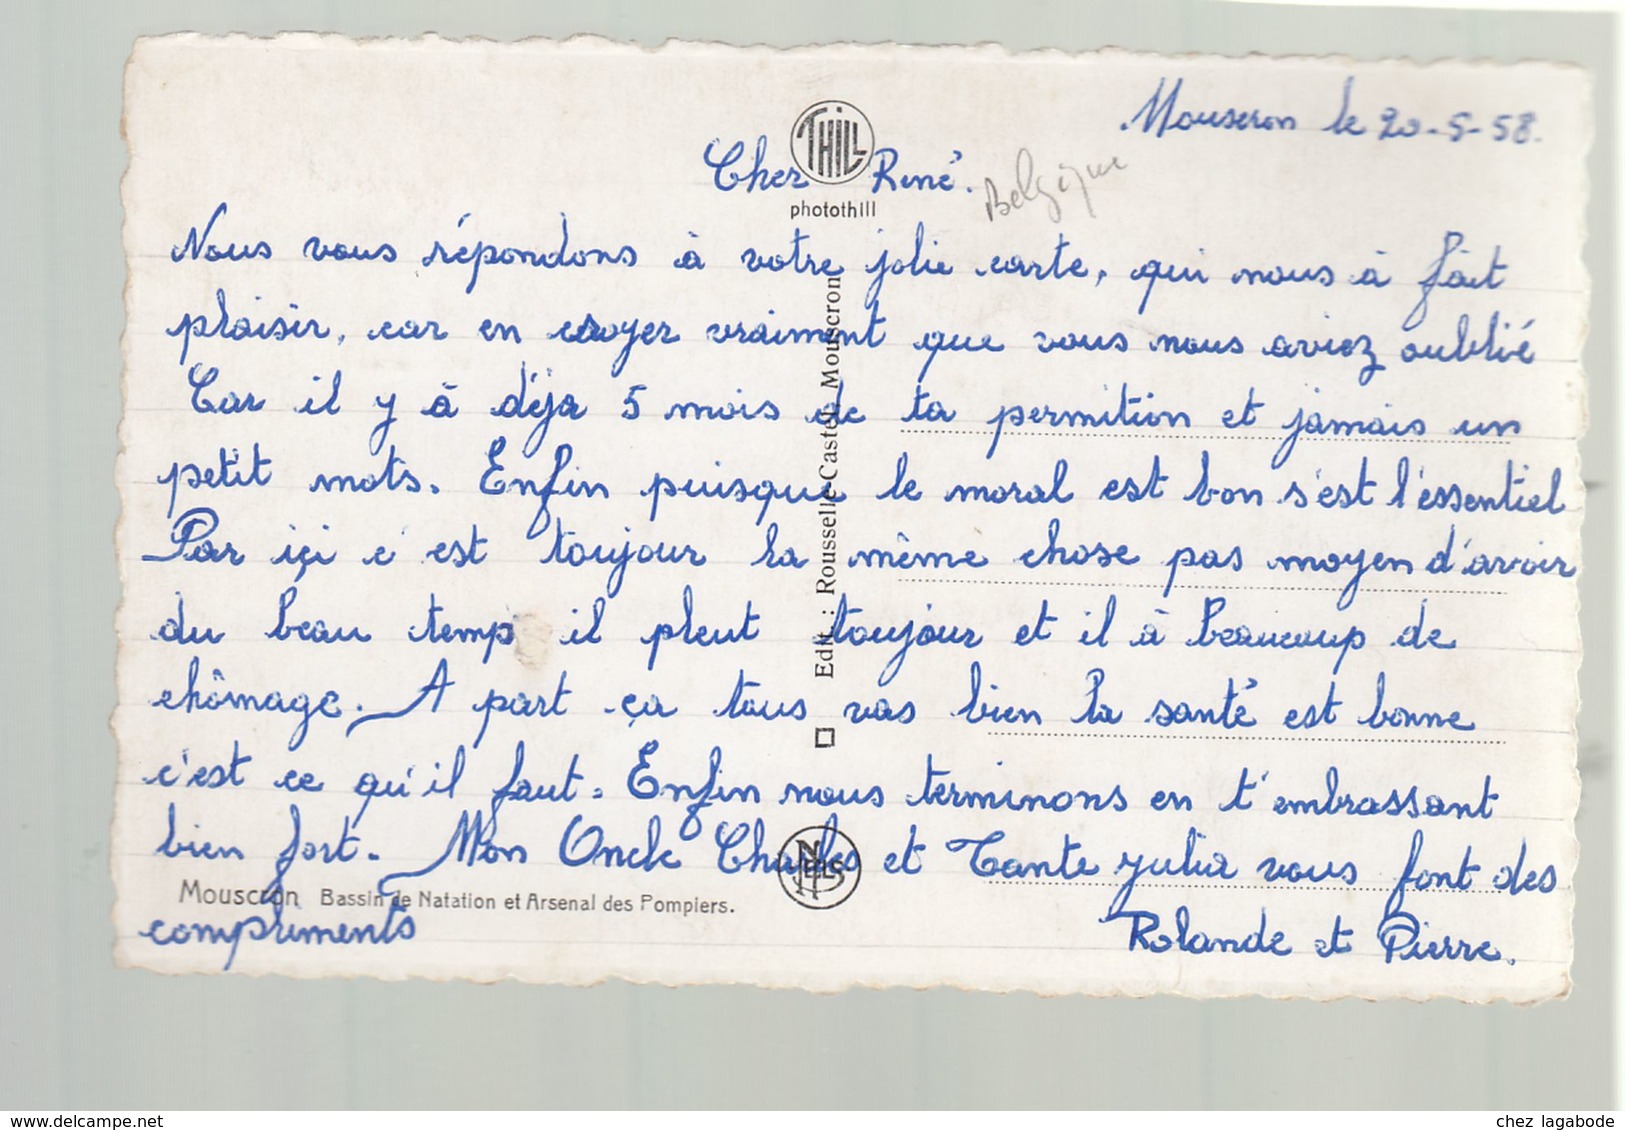 Mouscron le 20-5-58.
THILL
photothill
Cher René.
Belgique
Nous vous répondons à votre jolie carte, qui nous à fait
plaisir, car en croyer vraiment que vous nous aviez oublié
Car il y à déja 5 mois de ta permition et jamais un
petit mots. Enfin puisque le moral est bon s'est l'éssentiel
Par içi c'est toujour la même chose pas moyen d'avoir
du beau temp il pleut toujour et il à beaucoup de
chômage. A part ça tous vas bien la santé est bonne
c'est ce qu'il faut. Enfin nous terminons en t'embrassant
bien fort. Mon Oncle Charles et Tante Julia vous font des
compliments
Rolande et Pierre.
Edit. : Rousselle-Castel, Mouscron
NELS
Mouscron Bassin de Natation et Arsenal des Pompiers.
www.delcampe.net
chez lagabode